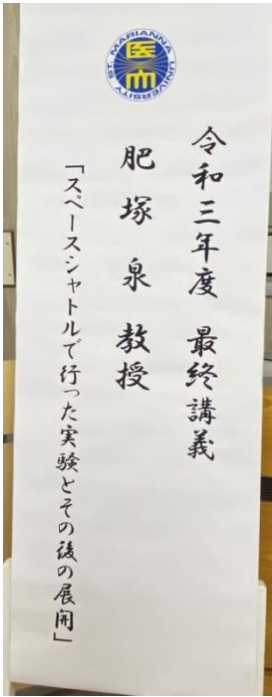 ST. MARIANNA UNIVERSITY
医大
令和三年度 最終講義
肥塚 泉 教授
「スペースシャトルで行った実験とその後の展開」